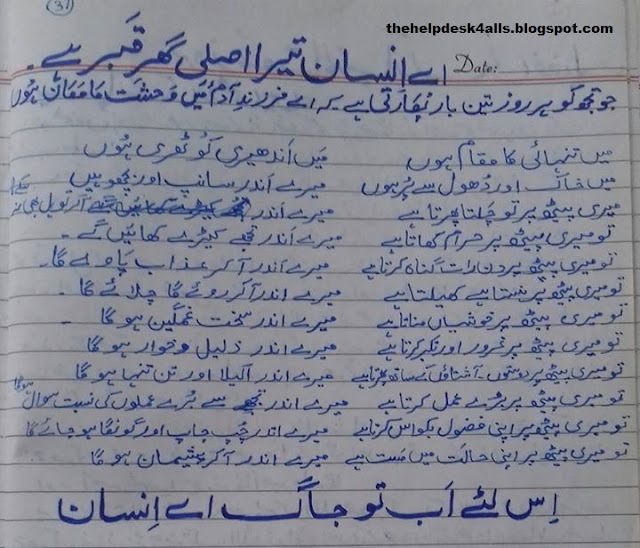 (31)
thehelpdesk4alls.blogspot.com
Date:
اے انسان تیرا اصلی گھر قبر ہے۔
جو تجھ کو ہر روز تین بار پکارتی ہے کہ اے فرزندِ آدم میں وحشت کا مکان ہوں
میں تنہائی کا مقام ہوں میں اندھیری کوٹھری ہوں
میں خاک اور دُھول سے پُر ہوں میرے اندر سانپ اور بچھو ہیں
میری پیٹھ پر تو چلتا پھرتا ہے میرے اندر آکر تو
تو میری پیٹھ پر حرام کھاتا ہے میرے اندر تجھے کیڑے کھائیں گے۔
تو میری پیٹھ پر دن رات گناہ کرتا ہے میرے اندر آکر عذاب پاوے گا۔
تو میری پیٹھ پر ہنستا ہے کھیلتا ہے میرے اندر آکر روئے گا چلائے گا۔
تو میری پیٹھ پر خوشیاں مناتا ہے میرے اندر سخت غمگین ہوگا۔
تو میری پیٹھ پر غرور اور تکبر کرتا ہے میرے اندر ذلیل و خوار ہوگا
تو میری پیٹھ پر دوستوں۔ آشناؤں کے ساتھ پھرتا ہے میرے اندر اکیلا اور تن تنہا ہوگا
تو میری پیٹھ پر بُرے عمل کرتا ہے میرے اندر تجھ سے بُرے عملوں کی نسبت سوال ہوگا
تو میری پیٹھ پر اپنی فضول بکواس کرتا ہے میرے اندر چُپ چاپ اور گونگا ہو جائے گا
تو میری پیٹھ پر اپنی حالت میں مست ہے میرے اندر آکر پشیمان ہوگا
اِس لئے اَب تو جاگ اے اِنسان